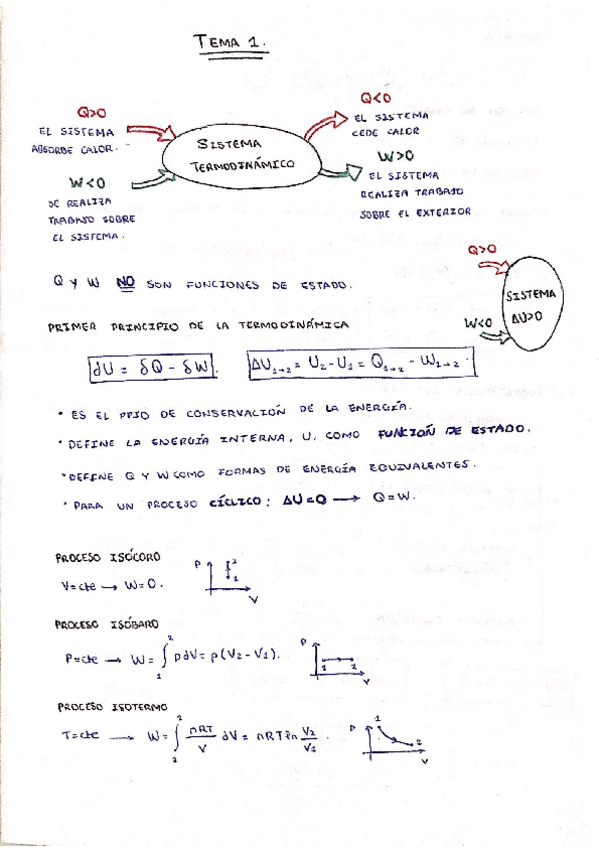 TEMA 1.
Q>0
EL SISTEMA
ABSORBE CALOR.
W<0
SE REALIZA
TRABAJO SOBRE
EL SISTEMA.
SISTEMA
TERMODINÁMICO
Q<0
EL SISTEMA
CEDE CALOR
W>0
EL SISTEMA
REALIZA TRABAJO
SOBRE EL EXTERIOR
Q>0
SISTEMA
ΔU>0
W<0
Q Y W NO SON FUNCIONES DE ESTADO.
PRIMER PRINCIPIO DE LA TERMODINÁMICA
dU = δQ - δW. ΔU₁→₂ = U₂-U₁ = Q₁→₂ - W₁→₂.
· ES EL PPIO DE CONSERVACIÓN DE LA ENERGÍA.
· DEFINE LA ENERGÍA INTERNA, U, COMO FUNCIÓN DE ESTADO.
· DEFINE Q Y W COMO FORMAS DE ENERGÍA EQUIVALENTES.
· PARA UN PROCESO CÍCLICO: ΔU=0 → Q=W.
PROCESO ISÓCORO
V=cte → W=0.
P 2 1 V
PROCESO ISÓBARO
P=cte → W = ∫₁² pdV = p(V₂-V₁).
P 1 2 V
PROCESO ISOTERMO
T=cte → W = ∫₁² nRT/V dV = nRT ln V₂/V₁.
P 1 2 V